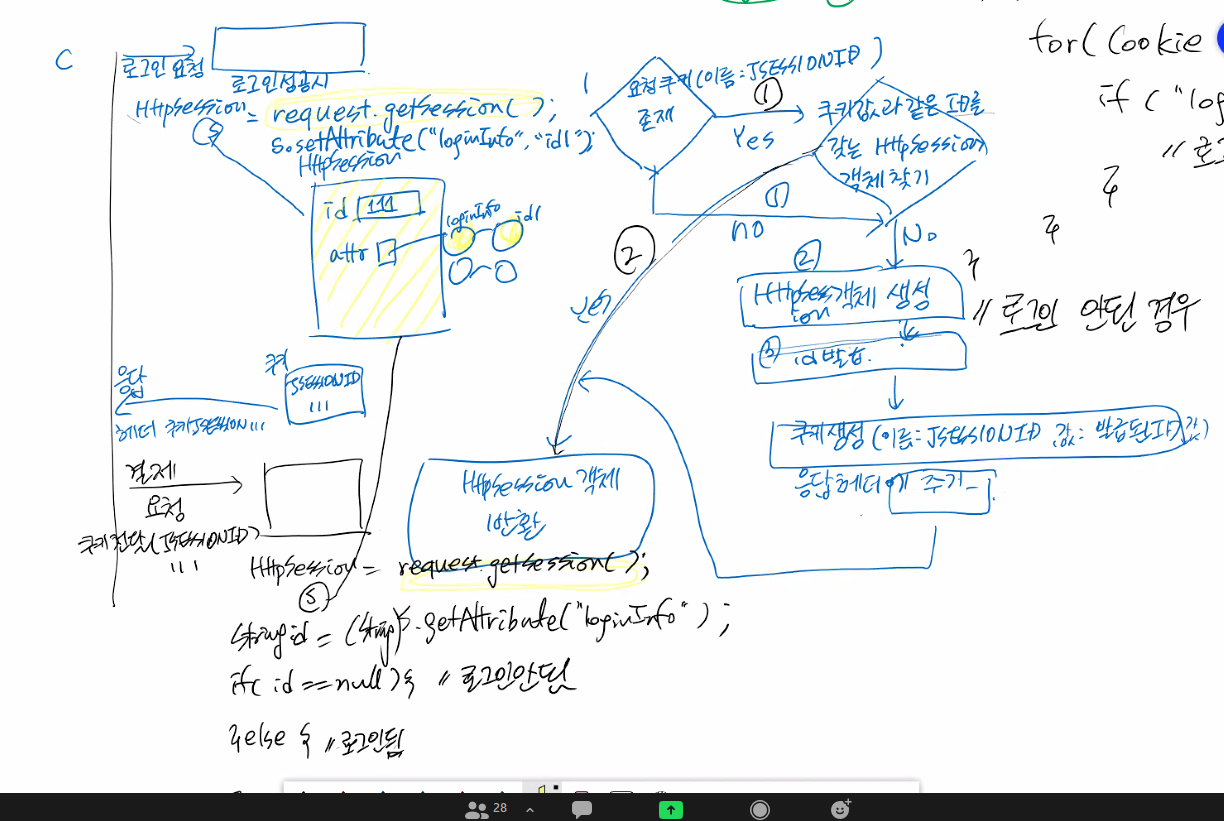 C
로그인 요청
로그인성공시
HttpSession = request.getSession( );
s.setAttribute("loginInfo", "id1");
HttpSession
id 111
attr
loginInfo
id1
쿠키
JSESSIONID
111
응답
헤더 쿠키JSESSION111
결제
요청
쿠키전달(JSESSIONID)
111
HttpSession = request.getSession( );
s
String id = (String)s.getAttribute("loginInfo" );
if( id ==null ){ // 로그인안됨
}else { // 로그인됨
요청쿠키(이름:JSESSIONID )
존재
①
Yes
쿠키값과 같은 ID를
갖는 HttpSession
객체찾기
①
no
②
No
②
HttpSession객체 생성
③ id발급.
쿠키생성 (이름:JSESSIONID 값: 발급된ID값)
응답헤더에 추가
HttpSession 객체
반환
for( Cookie
if ( "log
// 로그
}
}
}
// 로그인 안된 경우
28